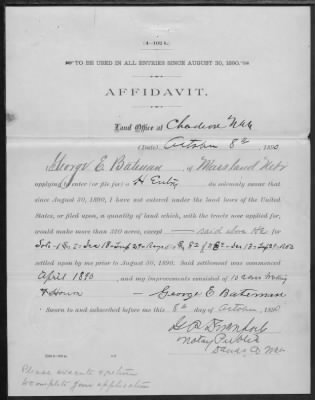 (4-102 b.)
TO BE USED IN ALL ENTRIES SINCE AUGUST 30, 1890.
AFFIDAVIT.
Land Office at Chadron Neb
(Date) October 8th, 1890
George E Bateman, of Marsland Nebr
applying to enter (or file for) a H Entry, do solemnly swear that
since August 30, 1890, I have not entered under the land laws of the United
States, or filed upon, a quantity of land which, with the tracts now applied for,
would make more than 320 acres, except — said above He for
Lots 1 & 2 Sec 18
settled upon by me prior to August 30, 1890. Said settlement was commenced
April 1890, and my improvements consisted of 10 acres
& House — George E Bateman
Sworn to and subscribed before me this 8th day of October, 1890
Notary Public
Dawes Co Neb
Please execute & return
to complete your application